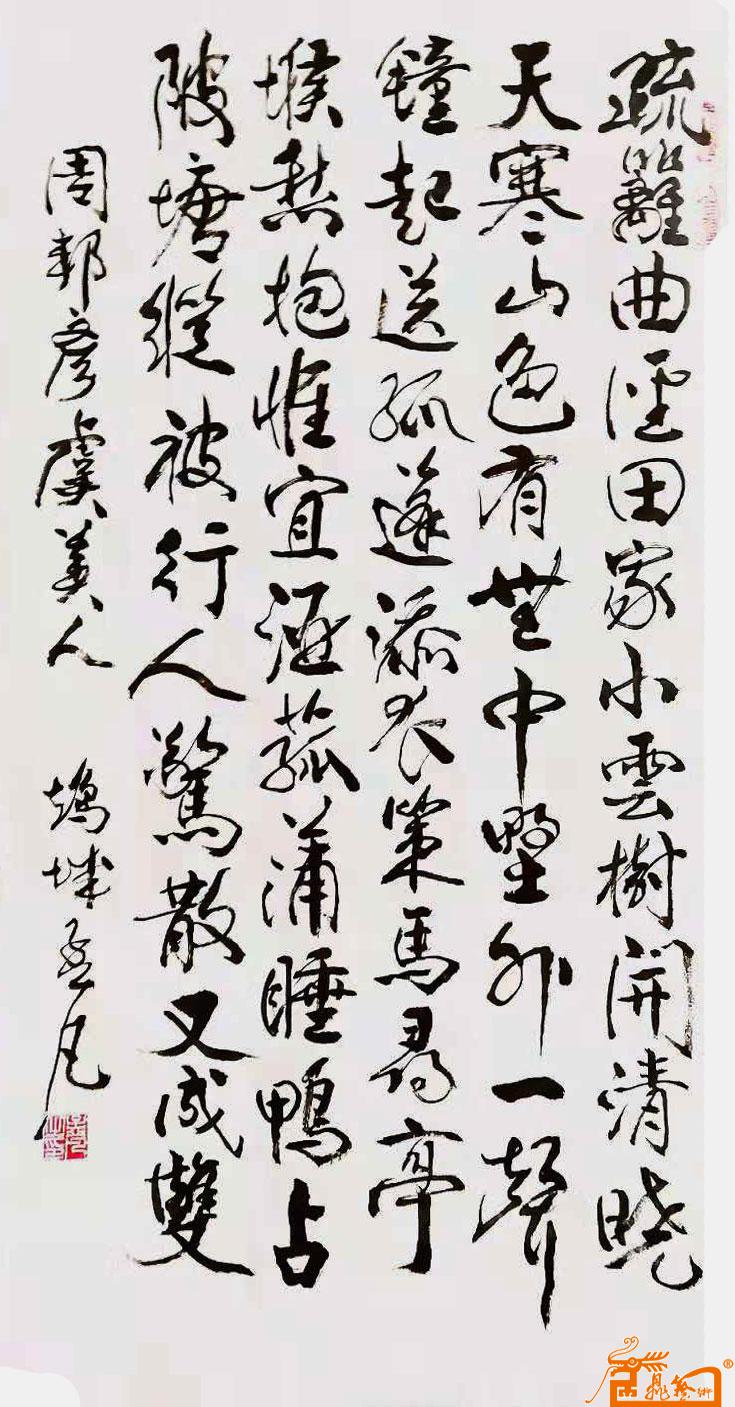 疏籬曲徑田家小雲樹開清曉
天寒山色有無中野外一聲
鐘起送孤蓬添衣策馬尋亭
堠愁抱惟宜酒菰蒲睡鴨占
陂塘縱被行人驚散又成雙
周邦彥虞美人 鴻城